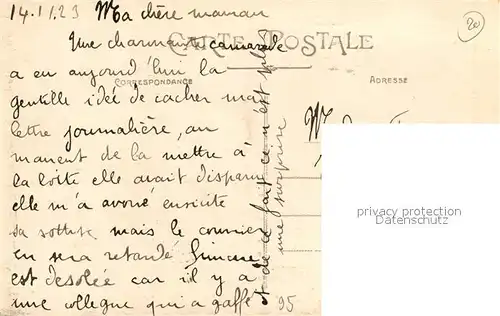 14.11.23 Ma chère maman
20
CARTE POSTALE
Une charmante camarade
a eu aujourd'hui la
CORRESPONDANCE
ADRESSE
gentille idée de cacher ma
lettre journalière, au
moment de la mettre à
la boîte elle avait disparu
elle m'a avoué ensuite
sa sottise mais le courrier
en sera retardé Simone
est désolée car il y a
une collegue qui a gaffé
et de ce fait ce n'est plus
une surprise
95
privacy protection
Datenschutz